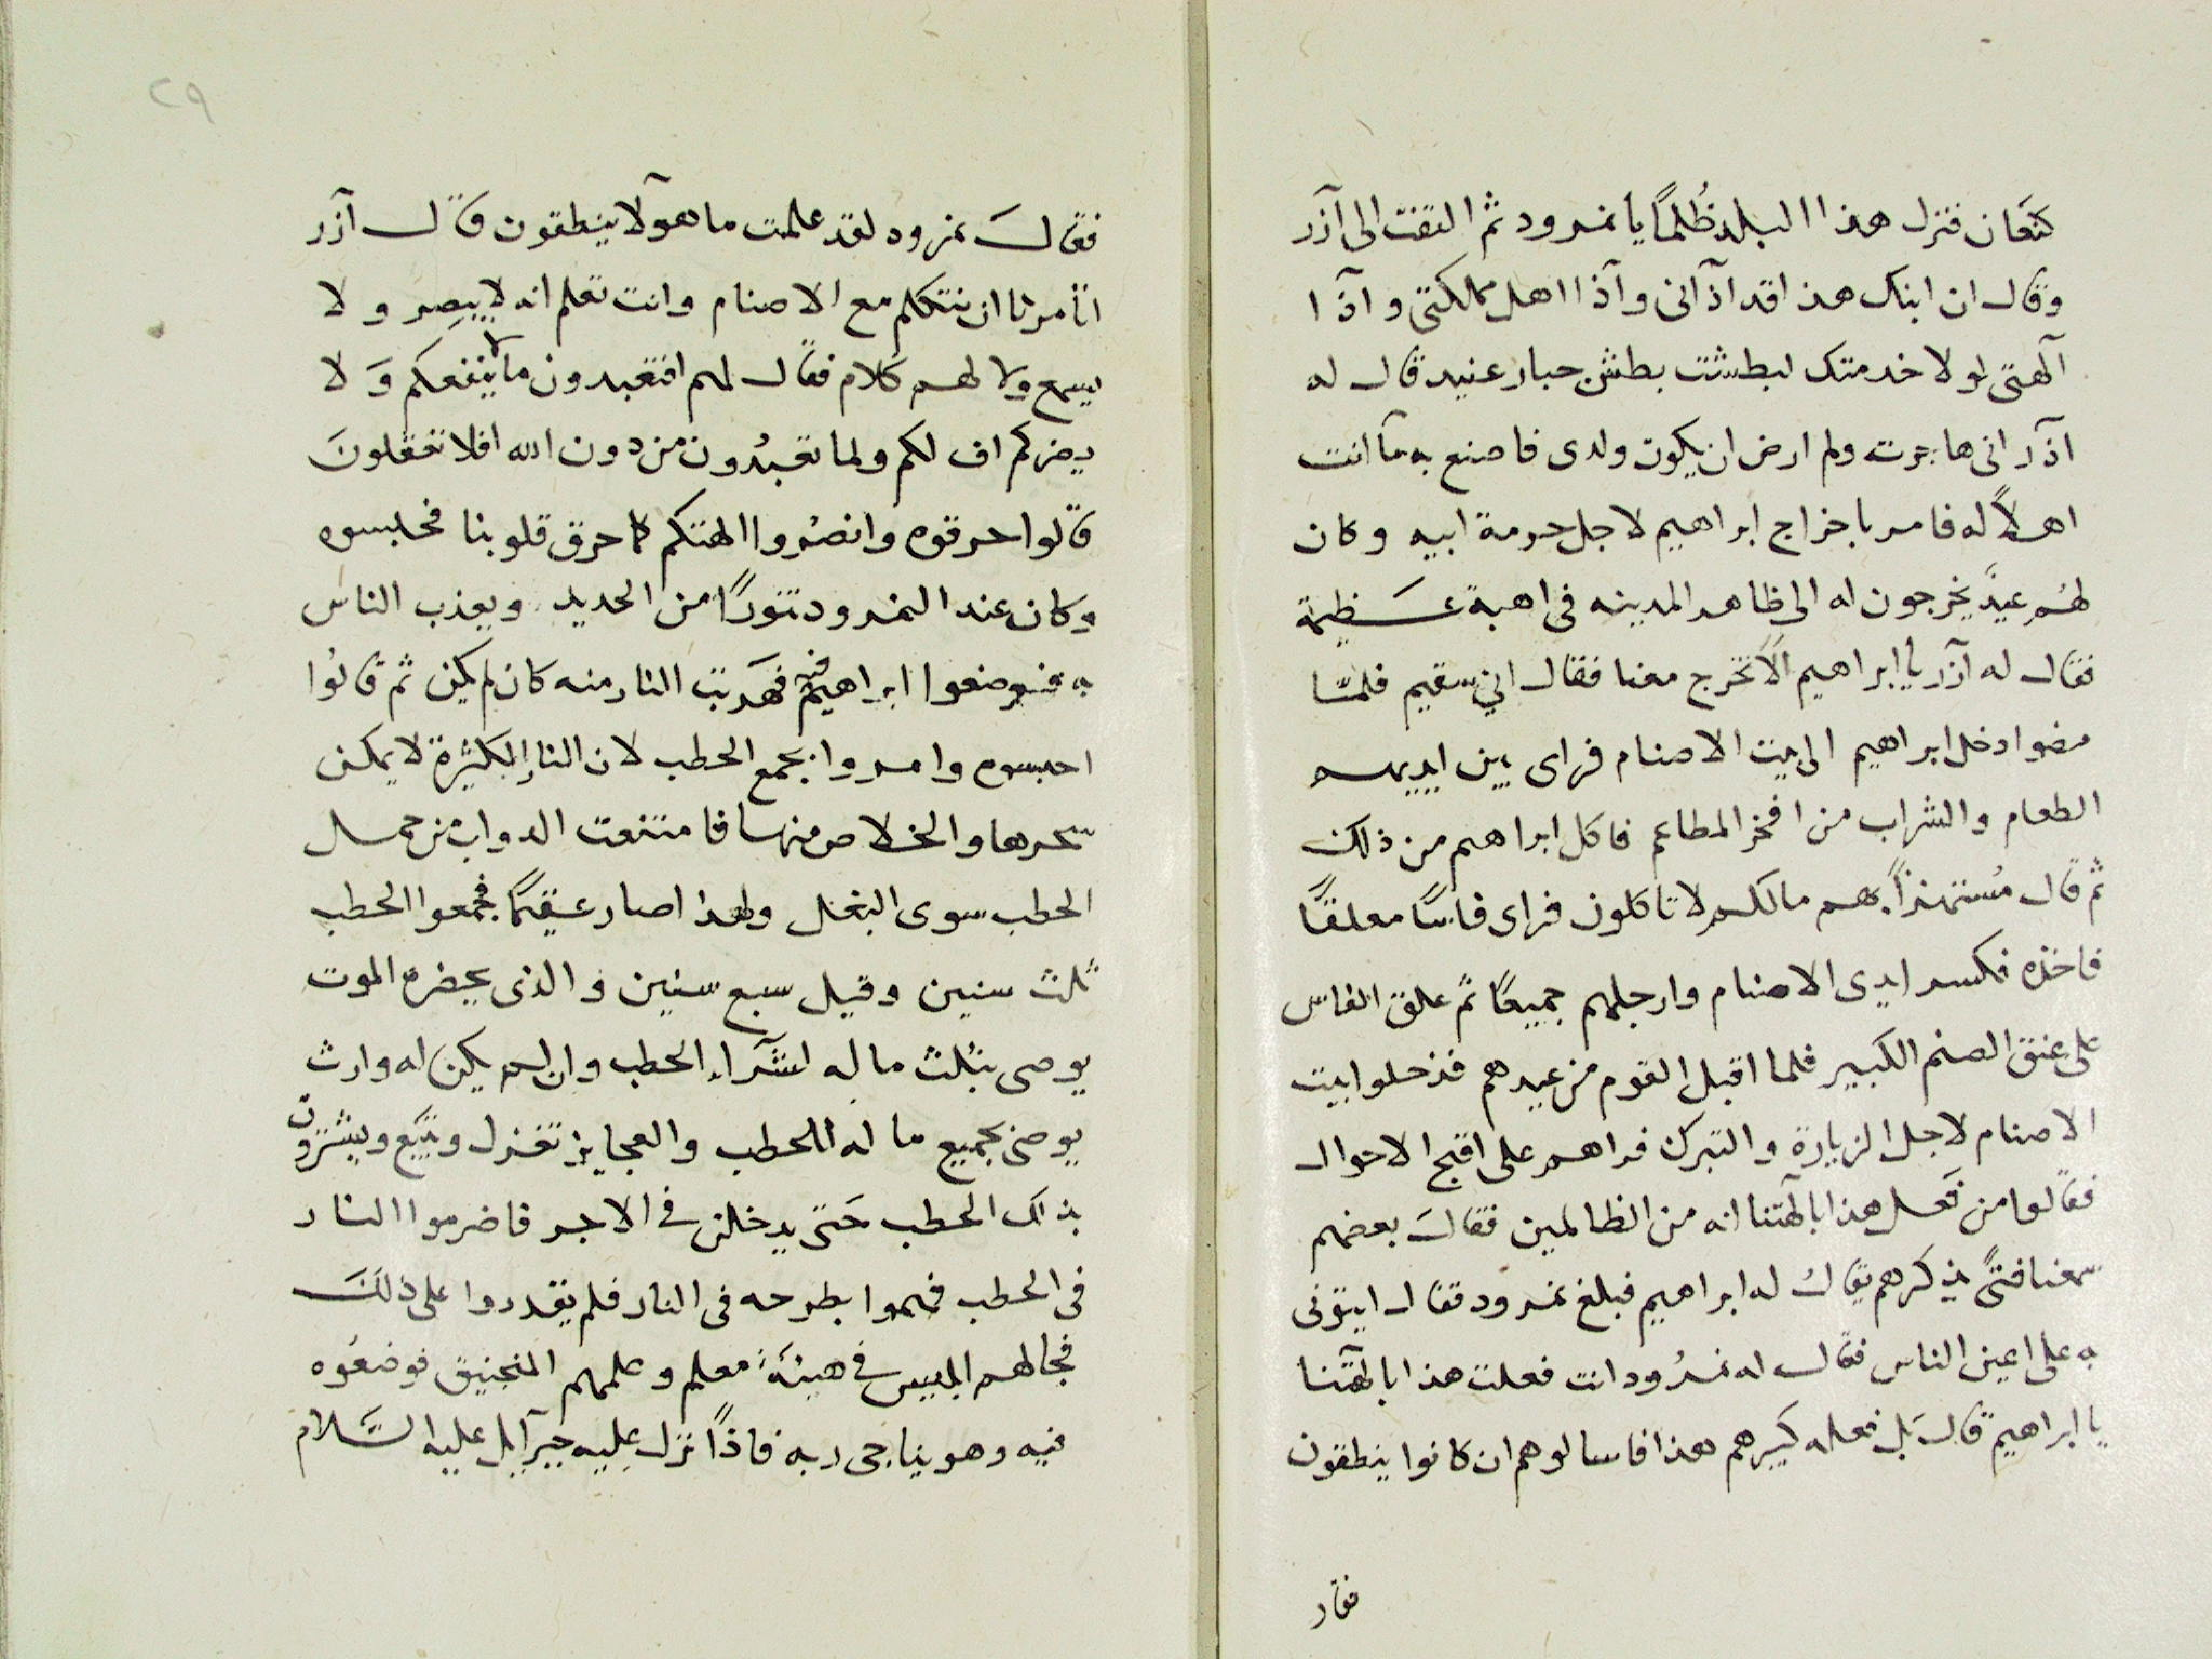 كنعان فنزل هذا البلد ظُلمًا يا نمرود ثم التفت الى آذر
وقال ان ابنك هذا قد آذانى وآذا اهل مملكتى وآذا
آلهتى لولا خدمتك لبطشت بطش جبار عنيد قال له
اذر انى هاجرت ولم ارض ان يكون ولدى فاصنع به مآ انت
اهلاً له فامر باخراج ابراهيم لاجل حرمة ابيه وكان
لهُم عيدٌ يخرجون له الى ظاهر المدينه فى اهبة عظيمة
فقال له آذر يا ابراهيم الا تخرج معنا فقال اني سقيم فلما
مضوا دخل ابراهيم الى بيت الاصنام فراى بين ايديهم
الطعام والشراب من افخر المطاعم فاكل ابراهيم من ذلك
ثم قال مُستهزأً بهم مالكم لا تاكلون فراى فاسًا معلقًا
فاخذه فكسر ايدى الاصنام وارجلهم جميعًا ثم علق الفاس
على عنق الصنم الكبير فلما اقبل القوم من عيدهم فدخلوا بيت
الاصنام لاجل الزيارة والتبرك فراهم على اقبح الاحوال
فقالوا من فَعل هذا بالهتنا انه من الظالمين فقالَ بعضهم
سمعنا فتىً يذكرهم يقالُ له ابراهيم فبلغ نمرود فقال ايتونى
به على اعين الناس فقال له نمرُود انت فعلت هذا بالهتنا
يا ابراهيم قال بَل فعله كبيرهم هذا فاسالوهم ان كانوا ينطقون
فقال
٢٩
فقالَ نمرود لقد علمت ما هولآ ينطقون قال آذر
اتامرنا ان نتكلم مع الاصنام وانت تعلم انه لا يبصر ولا
يسمع ولا لهم كلام فقال لهم افتعبدون ما لا ينفعكم وَلا
يضركم اف لكم ولما تعبُدون من دون الله افلا تعقلونَ
قالوا حرقوه وانصُروا الهتكم كما حرق قلوبنا فحبسوه
وكان عند النمرود تنورًا من الحديد ويعذب الناس
به فوضعوا ابراهيم فيه فهَربت النار منه كان لم يكن ثم قالُوا
احبسوه وامروا بجمع الحطب لان النار الكثيرة لا يمكن
سحرها والخلاص منها فامتنعت الدواب من حمل
الحطب سوى البغل ولهذا صار عقيمًا فجمعوا الحطب
ثلث سنين وقيل سبع سنين والذى يحضره الموت
يوصى بثُلث ماله لشَرآء الحطب وان لم يكن له وارث
يوصى بجميع ما له للحطب والعجايز تغزل وتبَيع ويشترون
بذلك الحطب حَتى يدخلن في الاجر فاضرموا النار
فى الحطب فهموا بطرحه فى النار فلم يقدروا على ذلكَ
فجالهم ابليس في هيئَة معلم وعلمهم المنجنيق فوضعُوه
فيه وهو يناجى ربه فاذاً نزل عليه جبرآيل عليه السَّلام